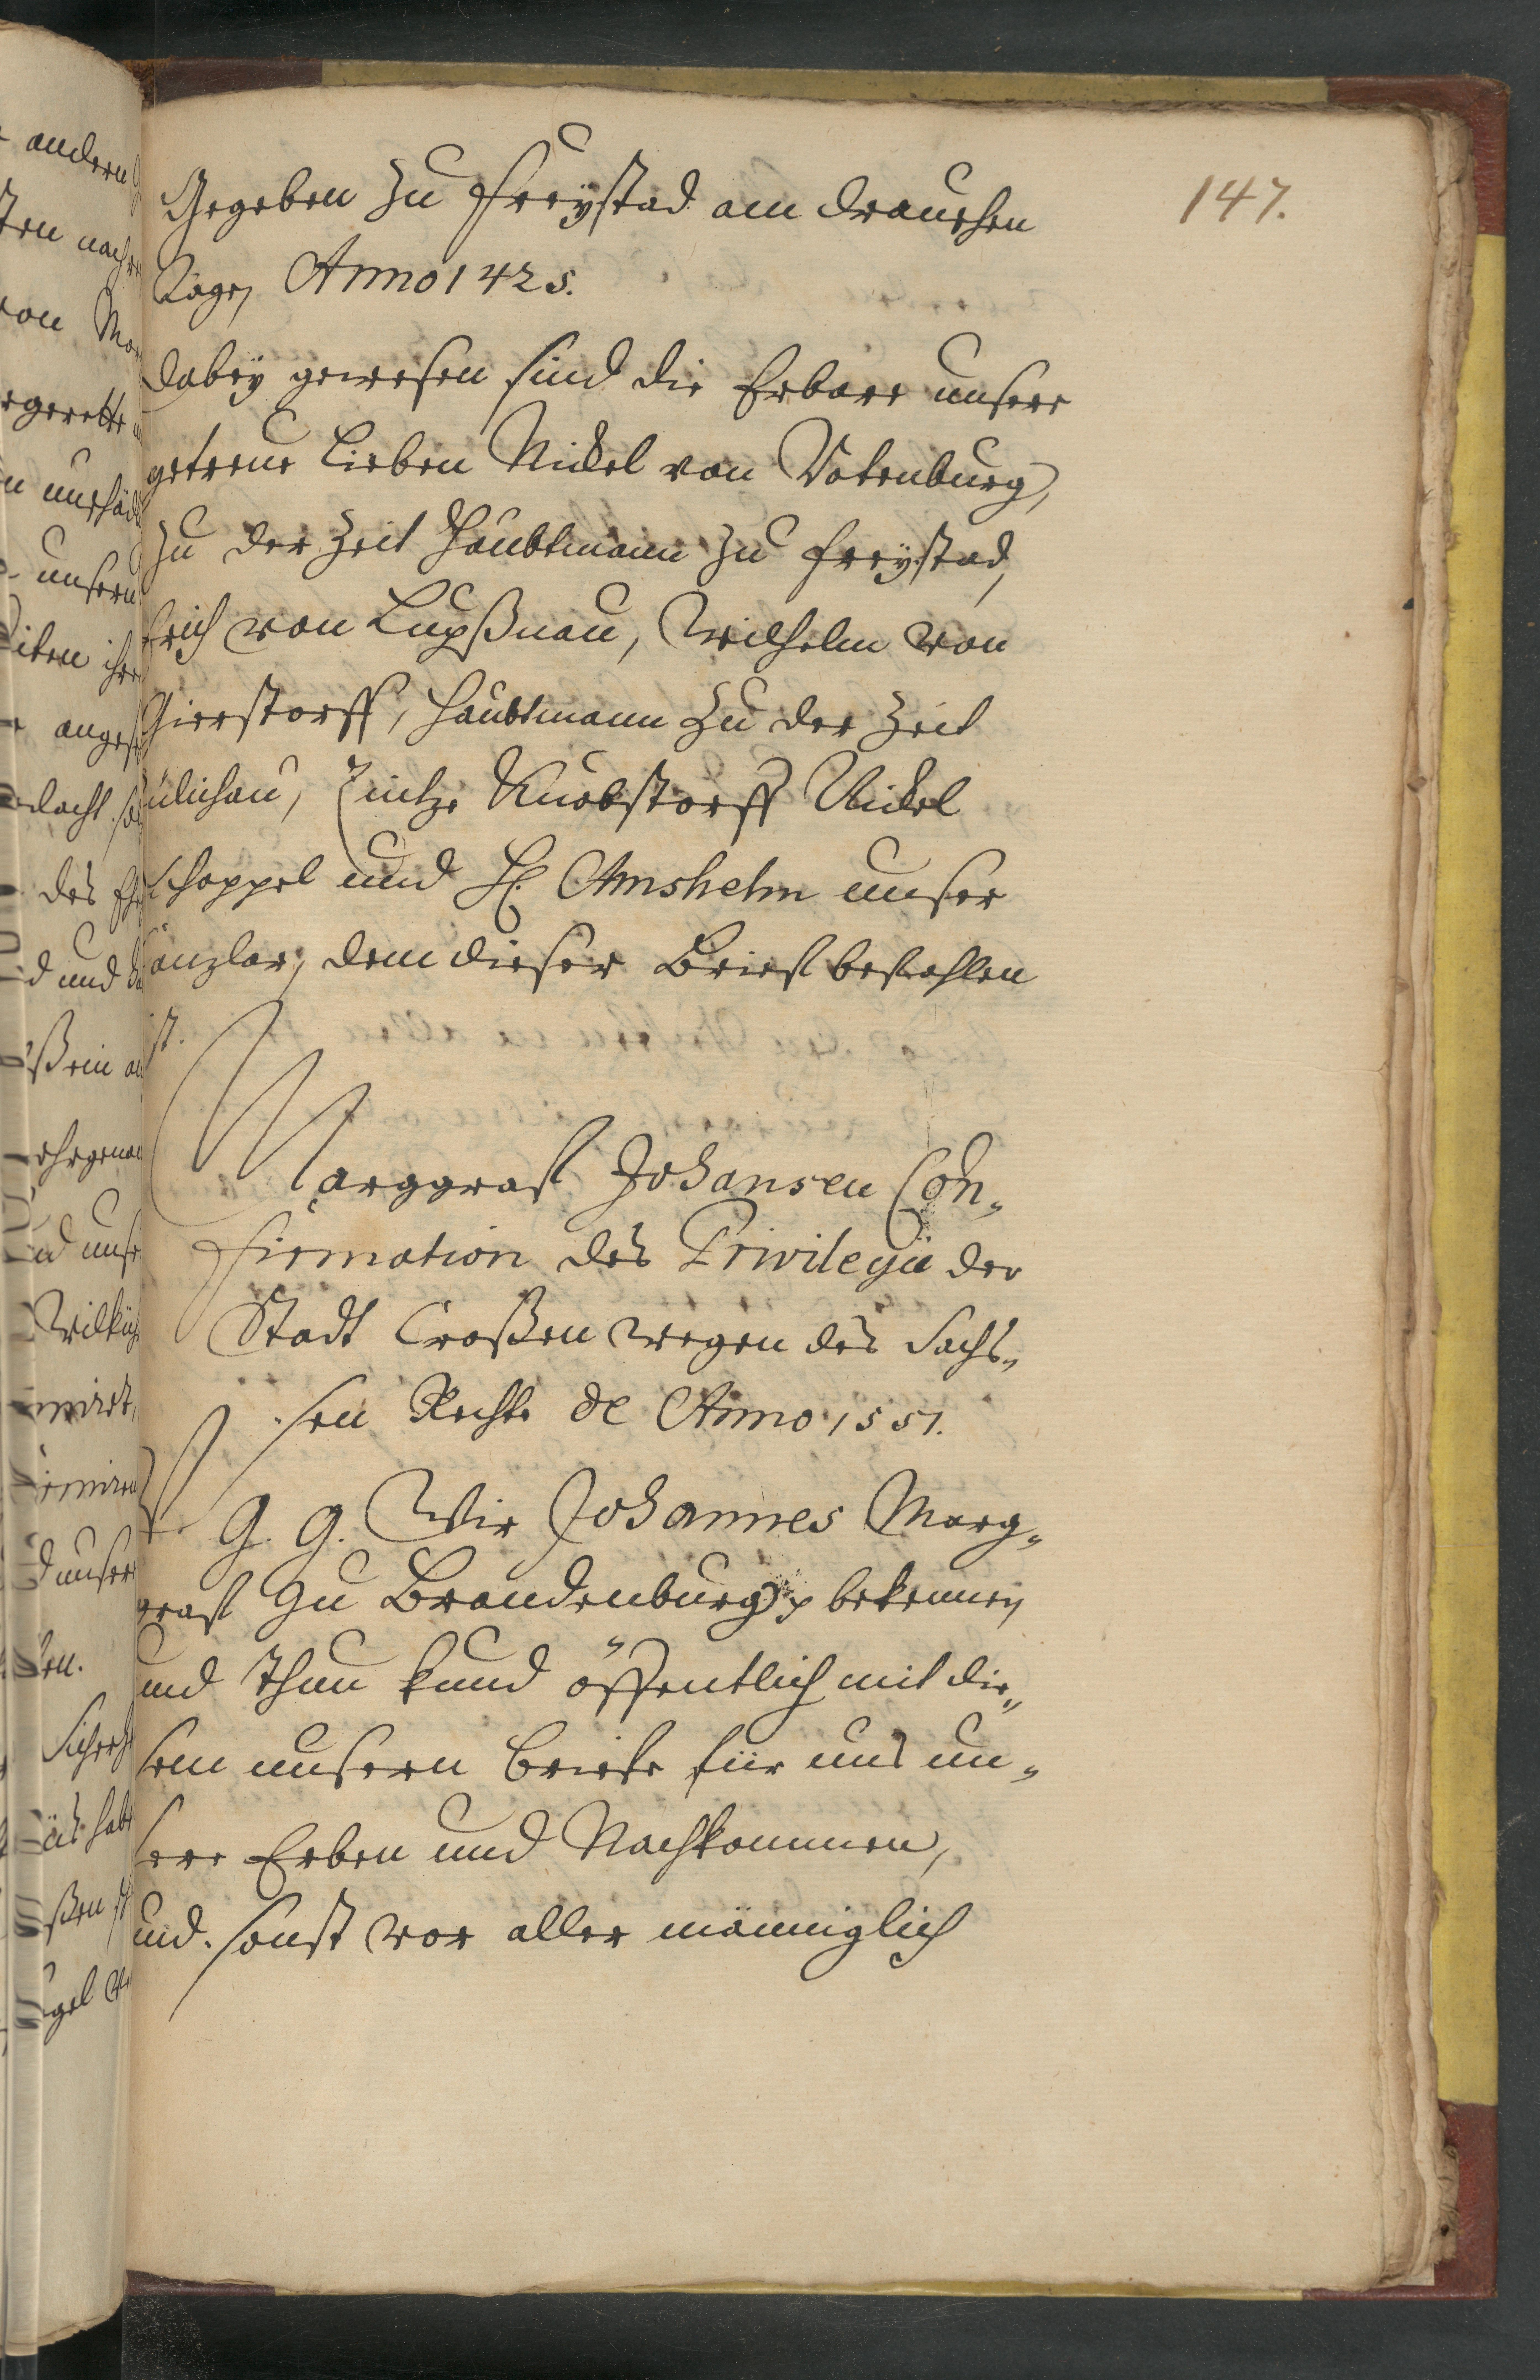 147.
Gegeben zu Freÿstad am
Tage, Anno 1425.
dabeÿ gewesen sind die Erbare unsere
getreue Lieben Nickel von Votenburg,
zu der Zeit Haubtmann zu Freÿstad,
Erich von Lupßnau, Wilhelm von
Gierstorff, Haubtmann zu der Zeit
Zülichau, Knobstorff Nickel
und H. Amshelm unser
Canzlar, dem dieser Brieff befohlen
ist.
Marggraff Johansen Con„
firmation des Privilegii der
Stadt Croßen wegen des Sachs„
sen Rechts de Anno 1551.
V. G. G. Wir Johannes Marg„
graff zu Brandenburg bekennen
und thun kund öffentlich mit die„
sem unsern Briefe für uns un„
sere Erben und Nachkommen,
und sonst vor aller männiglich